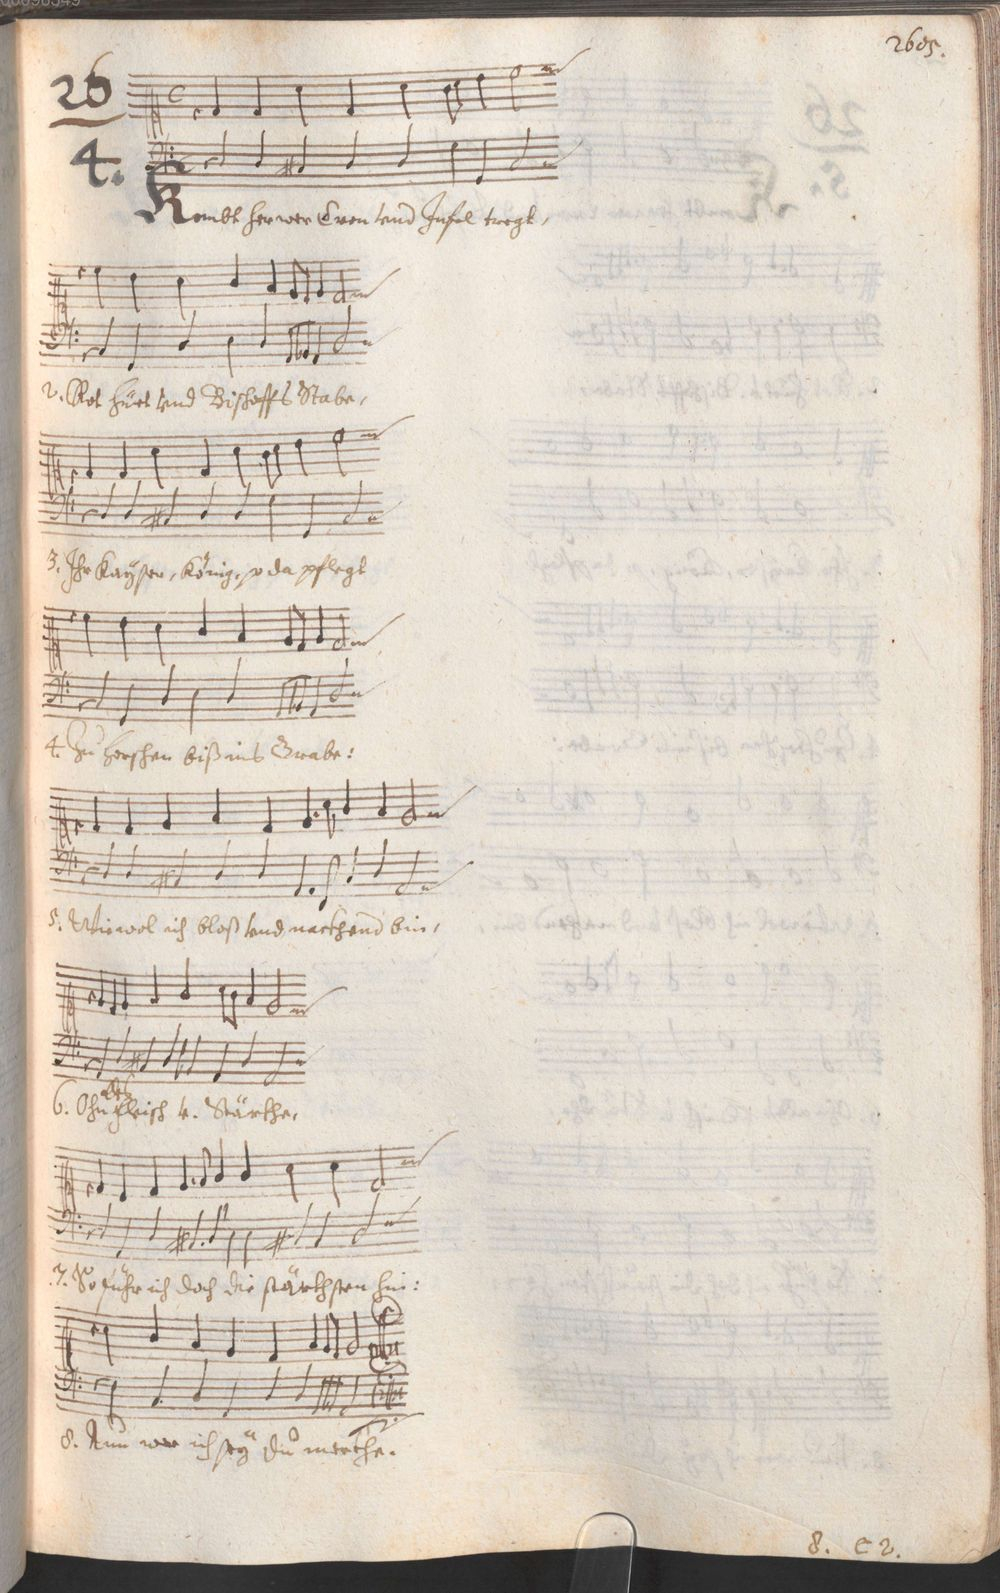 2605.
26
4.
Kombt her wer Cron vnd Inful tregt,
2. Rot hüet vnd Bischoffs Stabe,
3. Ihr Kaÿser, König, so da pflegt
4. Zu herschen biß ins Grabe:
5. Wiewol ich bloß vnd nackhend bin,
6. Ohn fleisch v. Stärkhe,
7. So führ ich doch die stärkhsten hin:
8. Nun wer ich seÿ du merkhe.
8. C 2.